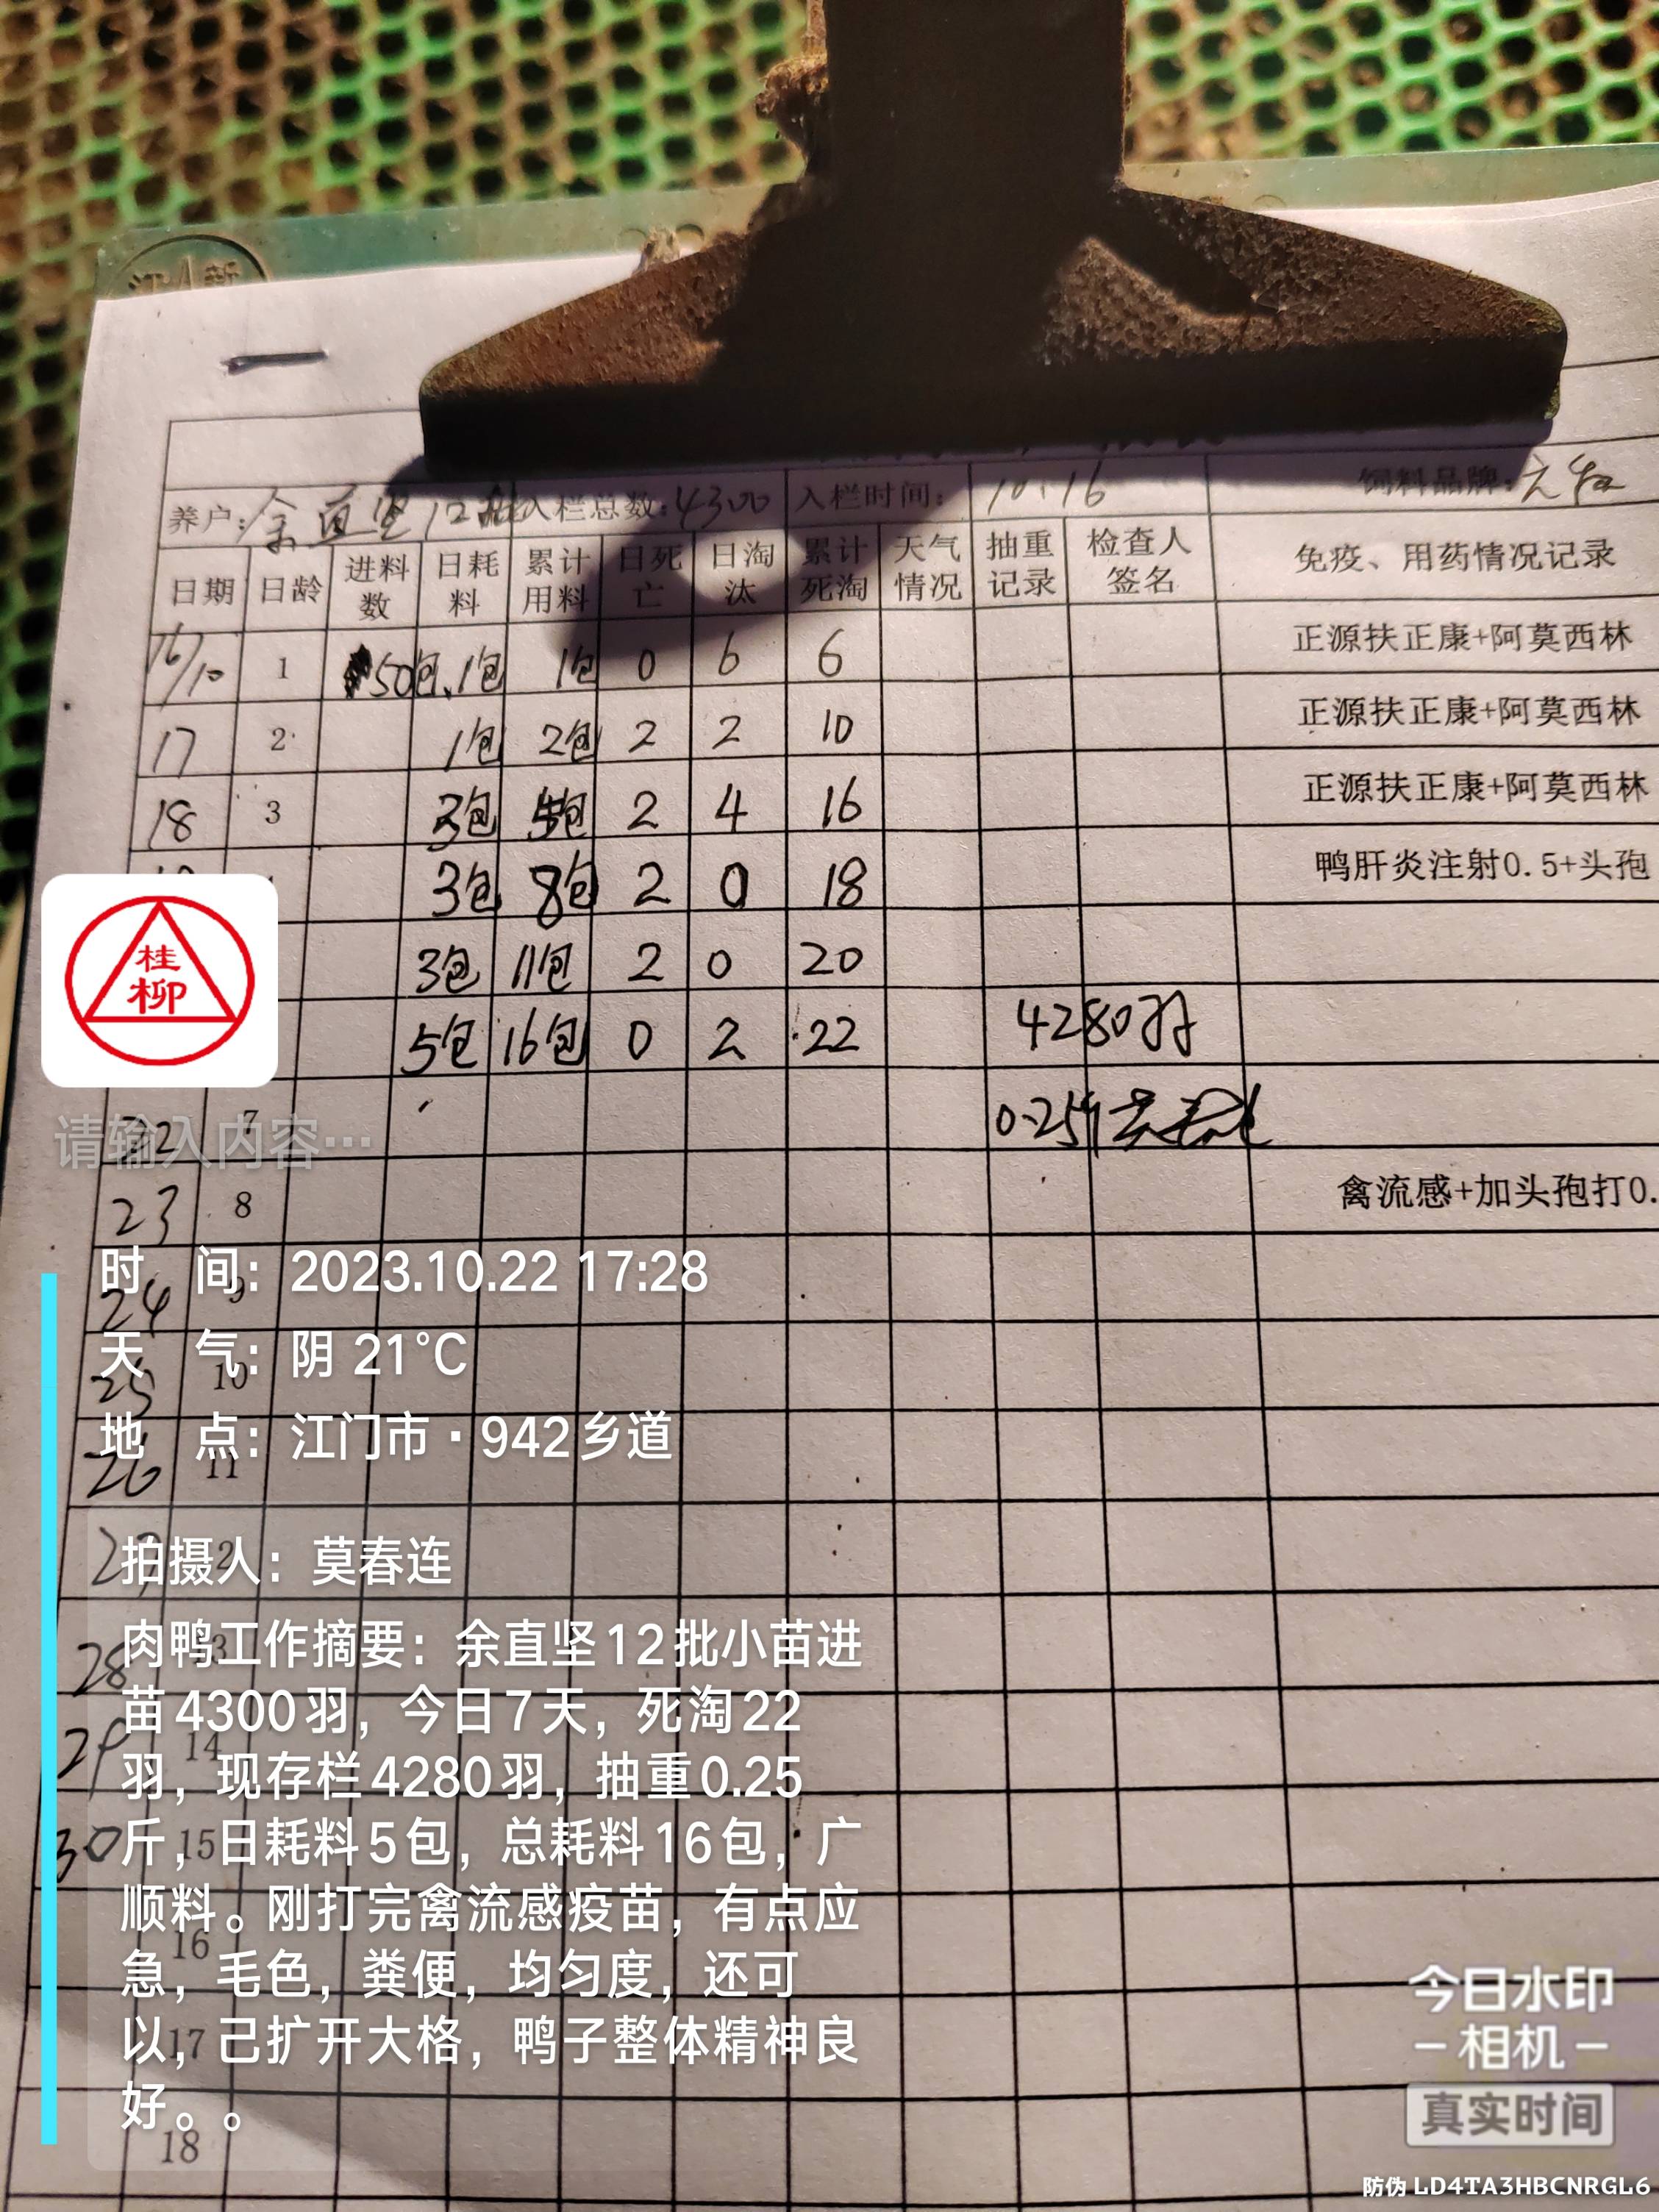 养户:余直坚12批 入栏总数:4300 入栏时间: 10.16 饲料品牌:
日期 日龄 进料数 日耗料 累计用料 日死亡 日淘汰 累计死淘 天气情况 抽重记录 检查人签名 免疫、用药情况记录
16/10 1 50包 1包 1包 0 6 6 正源扶正康+阿莫西林
17 2 1包 2包 2 2 10 正源扶正康+阿莫西林
18 3 3包 5包 2 4 16 正源扶正康+阿莫西林
3包 8包 2 0 18 鸭肝炎注射0.5+头孢
3包 11包 2 0 20
5包 16包 0 2 22 4280羽
22 7 0.25斤
23 8 禽流感+加头孢打0.
24 9
25 10
26 11
27 12
28 13
29 14
30 15
16
17
18
桂柳
请输入内容…
时 间: 2023.10.22 17:28
天 气: 阴 21°C
地 点: 江门市·942乡道
拍摄人: 莫春连
肉鸭工作摘要: 余直坚12批小苗进
苗4300羽, 今日7天, 死淘22
羽, 现存栏4280羽, 抽重0.25
斤, 日耗料5包, 总耗料16包, 广
顺料。刚打完禽流感疫苗, 有点应
急, 毛色, 粪便, 均匀度, 还可
以, 己扩开大格, 鸭子整体精神良
好。。
今日水印
-相机-
真实时间
防伪 LD4TA3HBCNRGL6